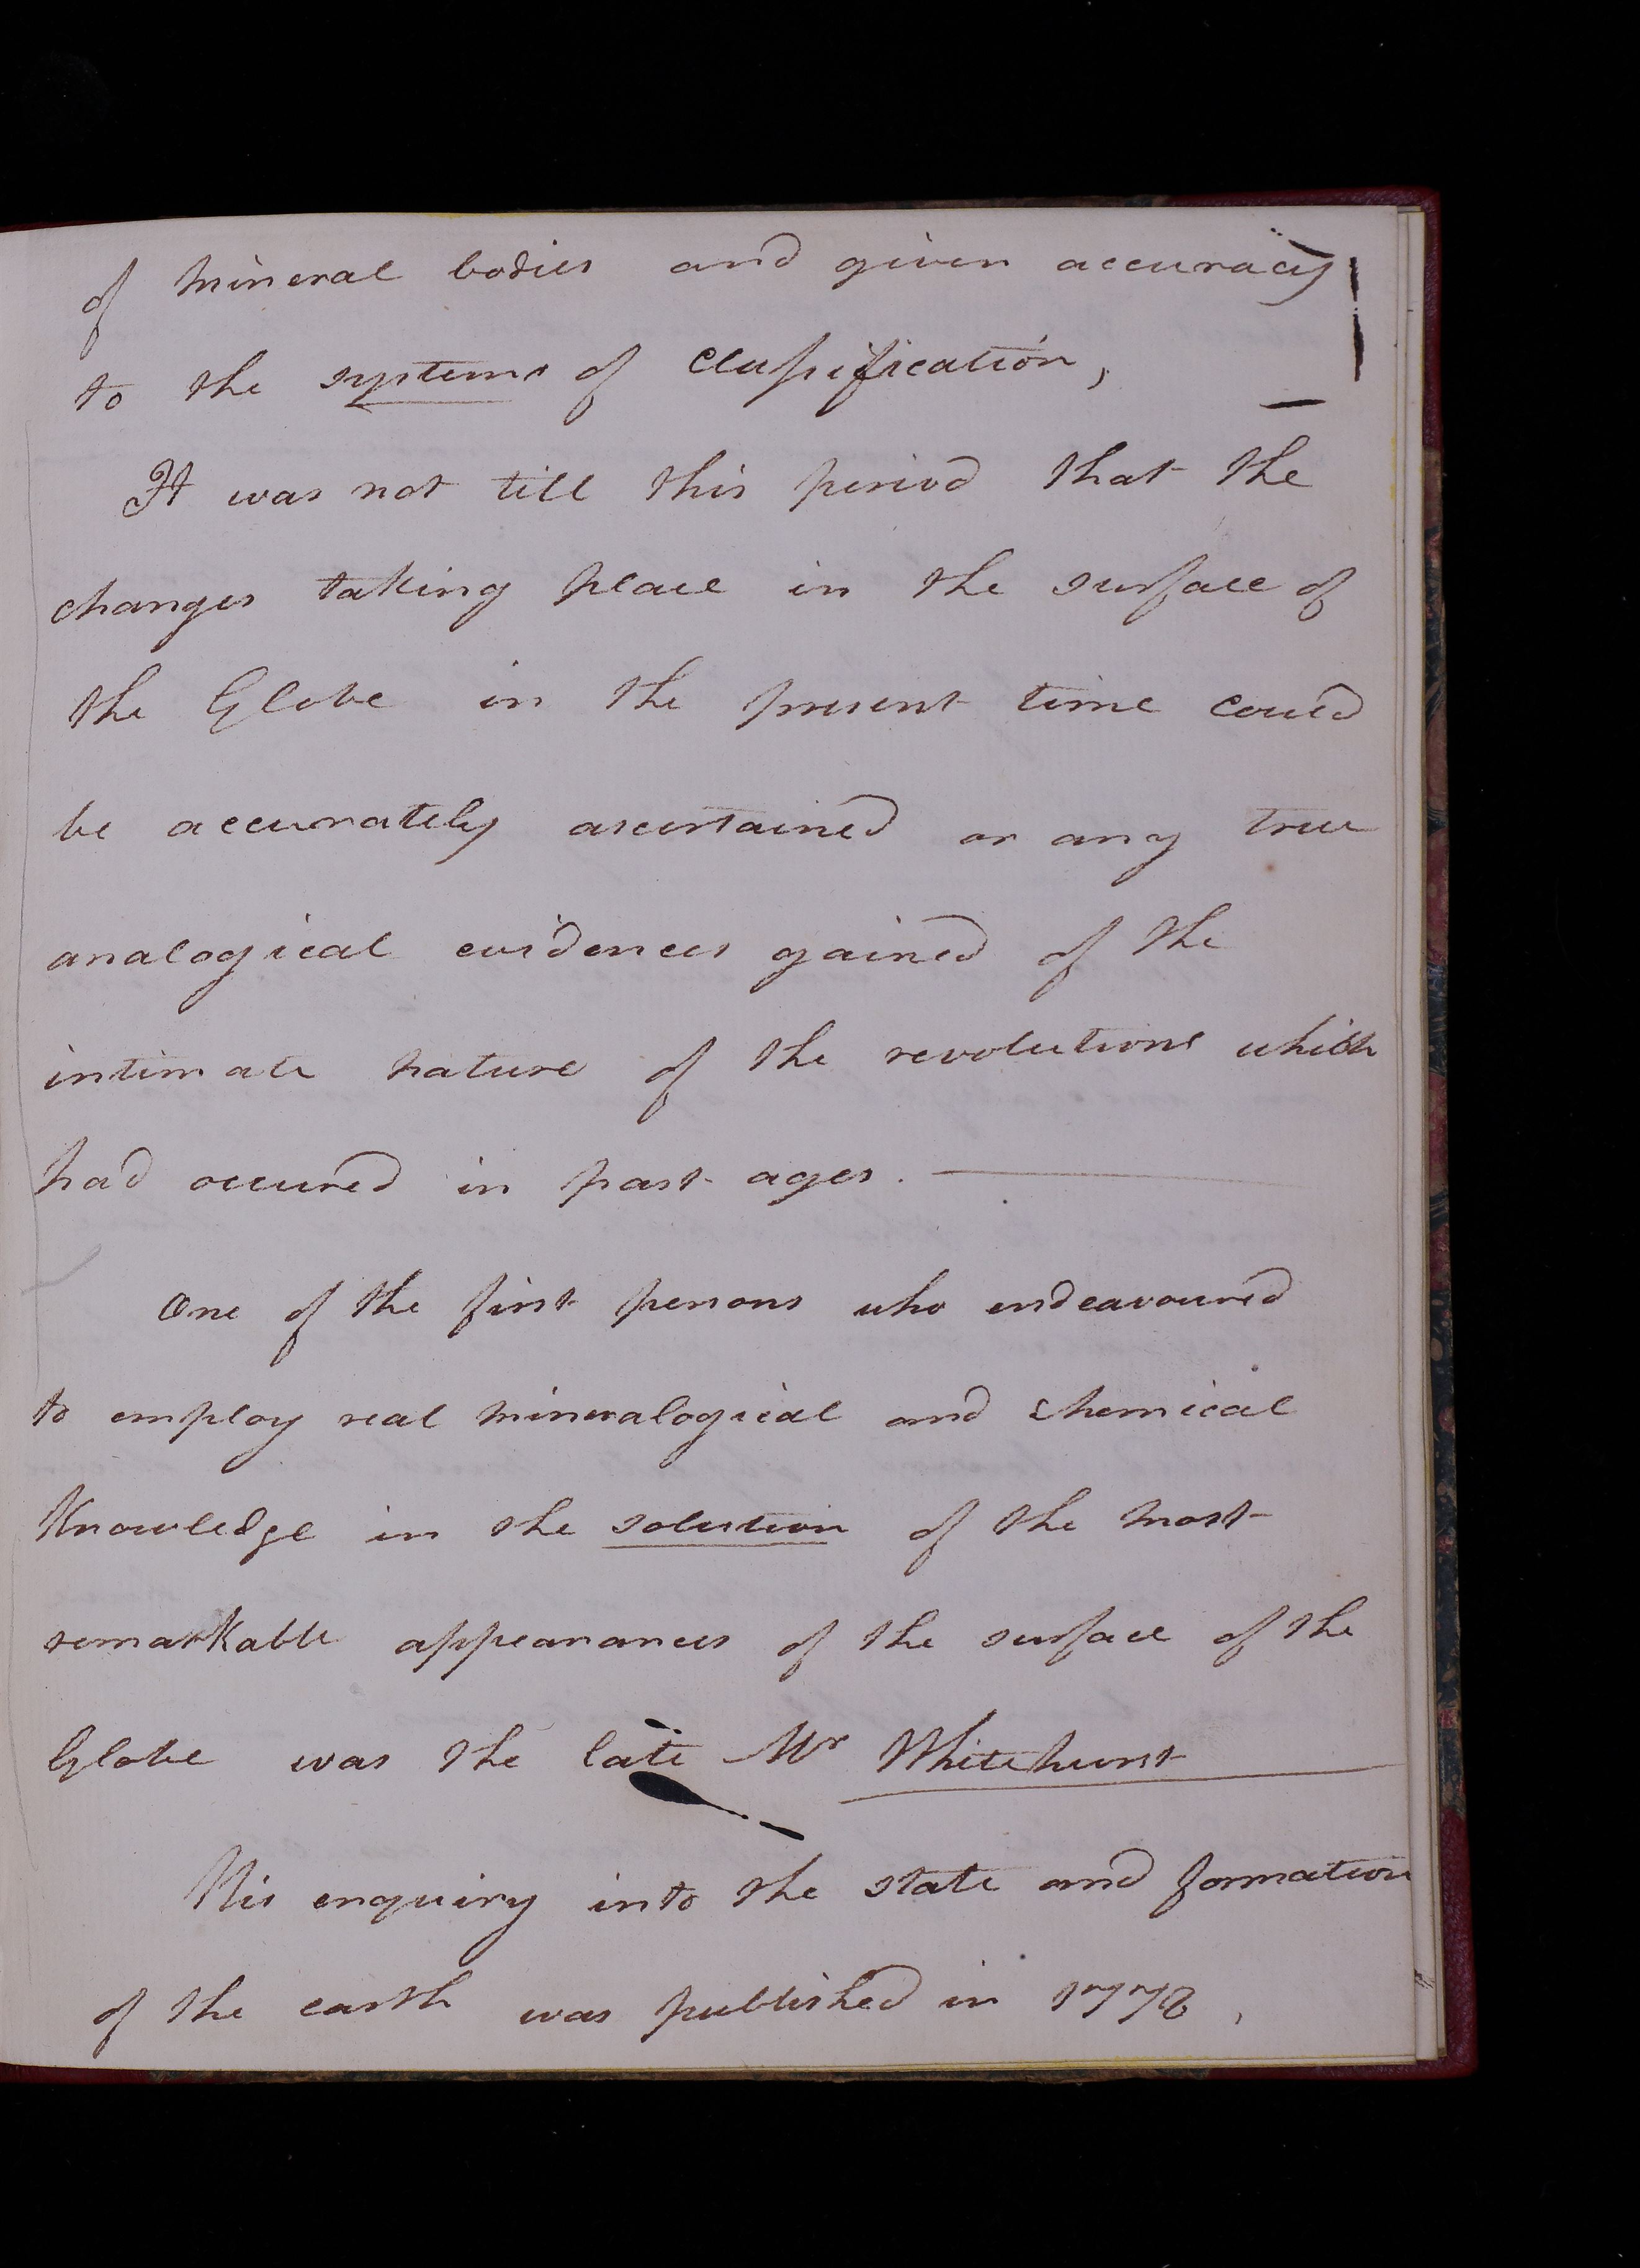 of mineral bodies and given accuracy
to the systems of classification,
It was not till this period that the
changes taking place in the surface of
the Globe in the present time could
be accurately ascertained or any true
analogical evidences gained of the
intimate nature of the revolutions which
had occured in past ages. —
One of the first persons who endeavoured
to employ real mineralogical and chemical
Knowledge in the solution of the most
remarkable appearances of the surface of the
Globe was the late Mr Whitehurst
His enquiry into the state and formation
of the earth was published in 1778,